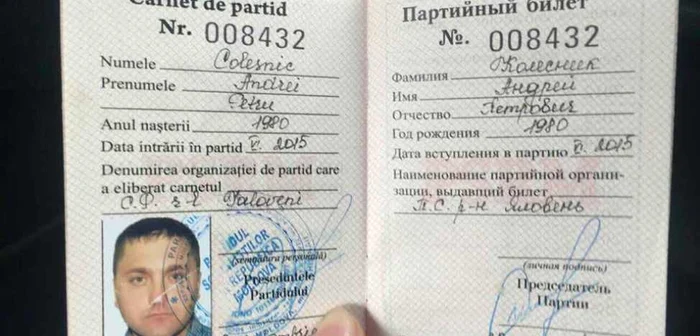 Carnet de partid
Nr. 008432
Numele Colesnic
Prenumele Andrei
Petru
Anul nașterii 1980
Data intrării în partid VI. 2015
Denumirea organizației de partid care
a eliberat carnetul
Ialoveni
(semnătura personală)
Președintele
Partidului
Партийный билет
№. 008432
Фамилия Колесник
Имя Андрей
Отчество Петрович
Год рождения 1980
Дата вступления в партию VI. 2015
Наименование партийной органи-
зации, выдавший билет
П.С. р-н Яловень
(личная подпись)
Председатель
Партии